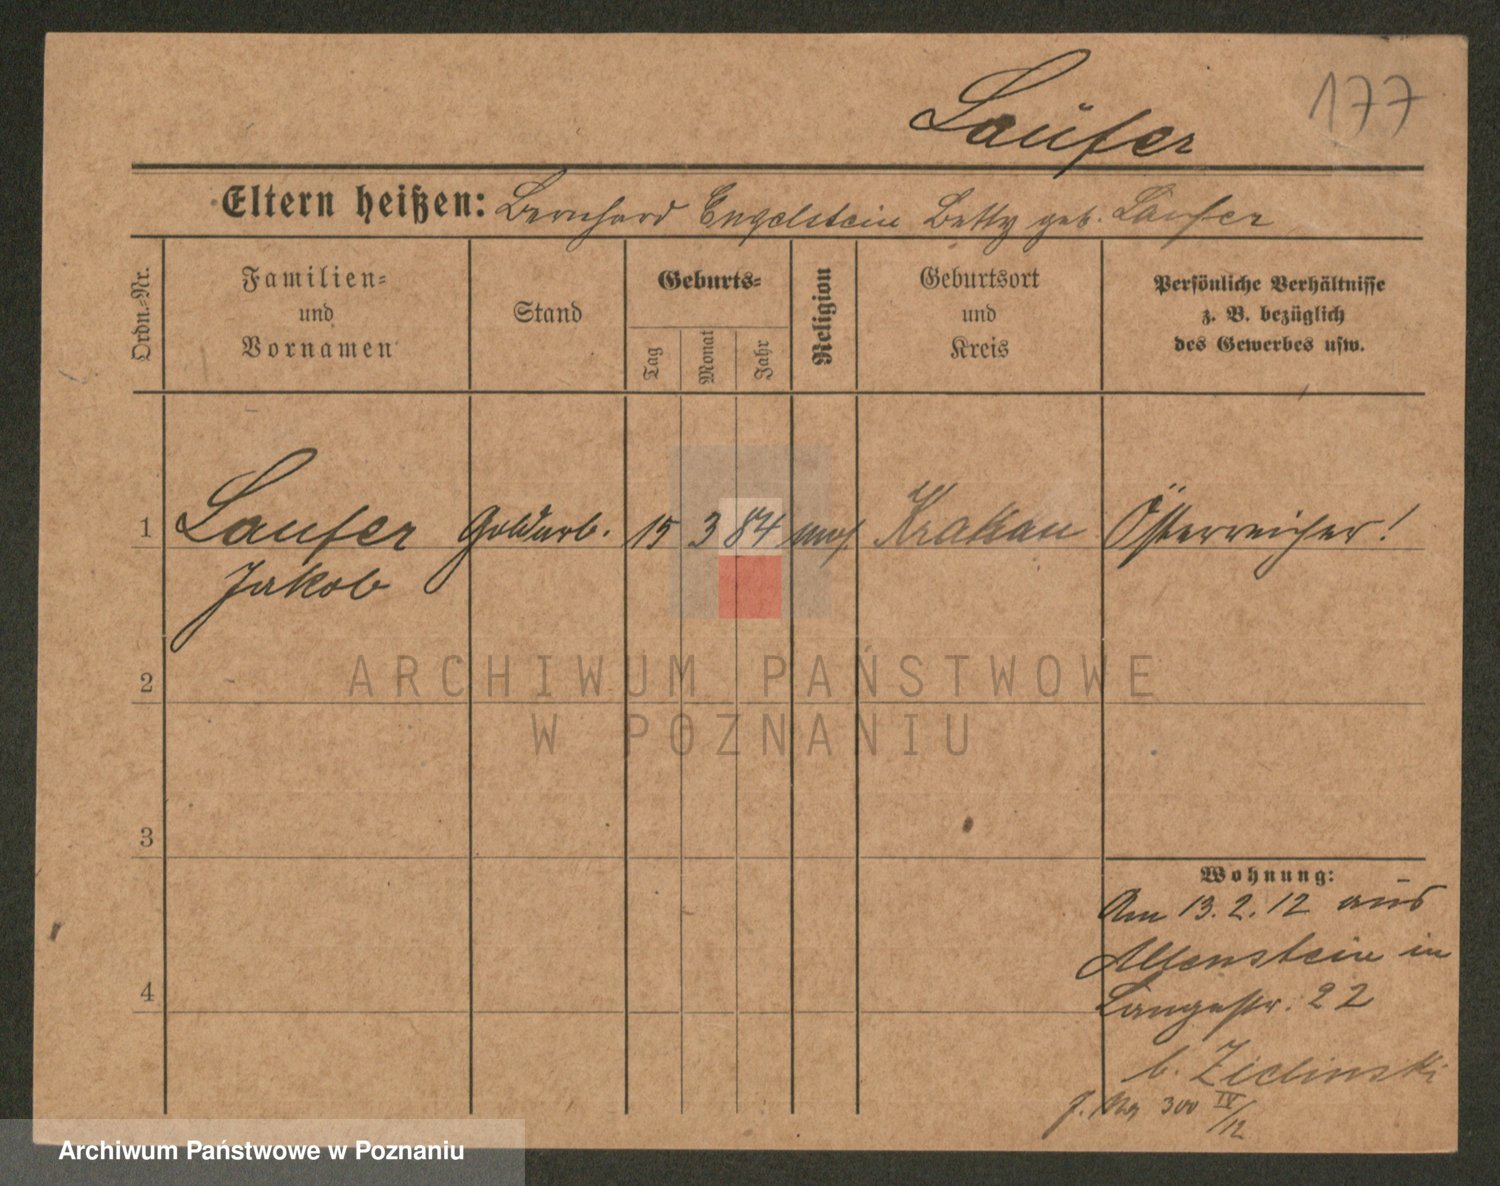 Laufer
177
Eltern heißen: Bernhard Engelstein Betty geb. Laufer
Ordn.-Nr.
Familien-
und
Vornamen
Stand
Geburts-
Tag
Monat
Jahr
Religion
Geburtsort
und
Kreis
Persönliche Verhältnisse
z. B. bezüglich
des Gewerbes usw.
1
Laufer
Jakob
Goldarb.
15
3
84
mos.
Krakau
Österreicher!
2
3
4
Wohnung:
Am 13.2.12 aus
Allenstein in
Langestr. 22
b. Zielinski
300 IV/12
ARCHIWUM PAŃSTWOWE
W POZNANIU
Archiwum Państwowe w Poznaniu